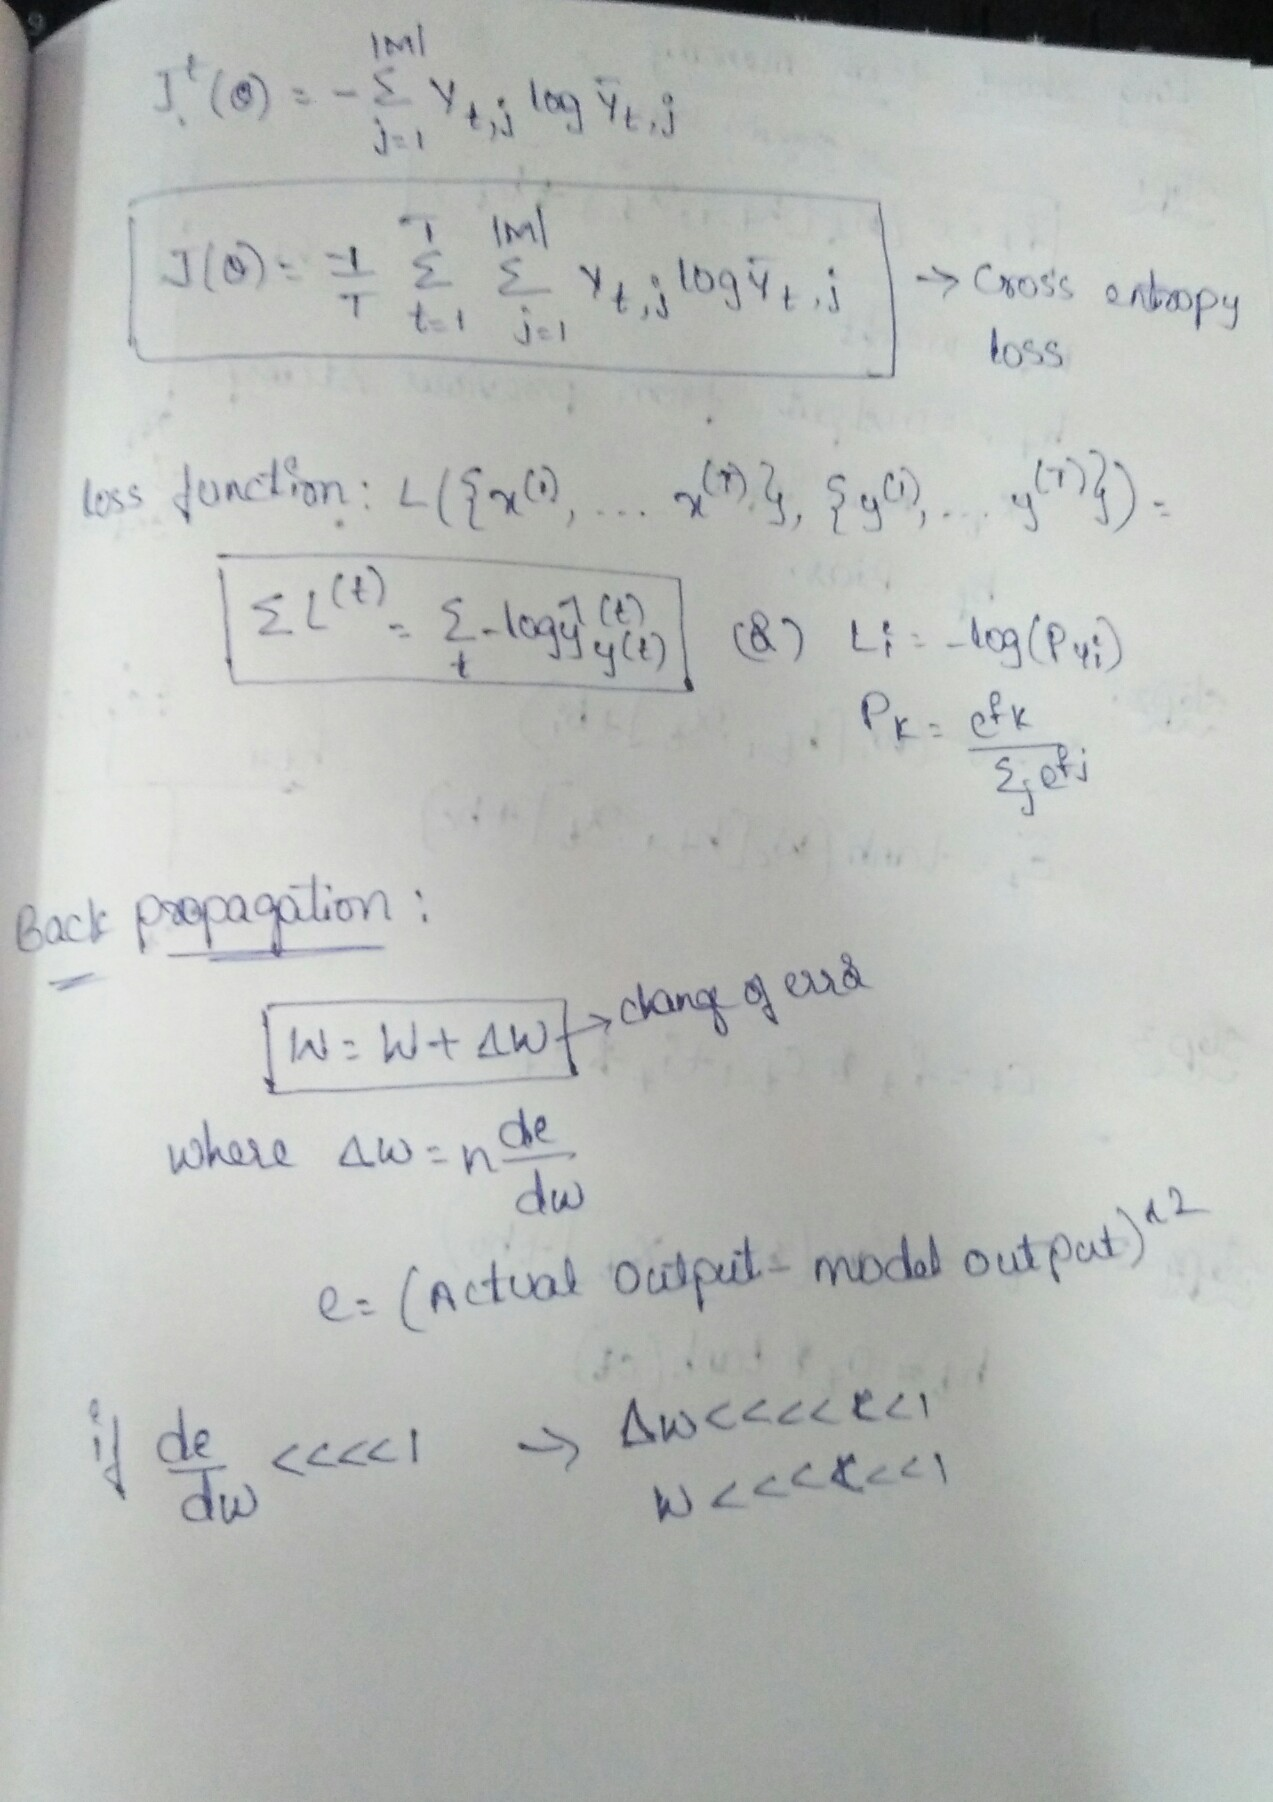 J^t(θ) = - Σ_{j=1}^{|M|} Y_{t,j} log Ȳ_{t,j}
J(θ) = -1/T Σ_{t=1}^{T} Σ_{j=1}^{|M|} Y_{t,j} log Ȳ_{t,j} → Cross entropy
loss
loss function: L({x^(1), ... x^(T)}, {y^(1), ... y^(T)}) =
Σ L^(t) = Σ_t -log ŷ_{y(t)}^(t) (or) L_i = -log(P_{yi})
P_k = e^{fk} / Σ_j e^{fj}
Back propagation:
W = W + ΔW → change of error
where Δw = n de/dw
e = (Actual output - model output)^2
if de/dw <<<<1 → Δw <<<<<<1
W <<<<<<1